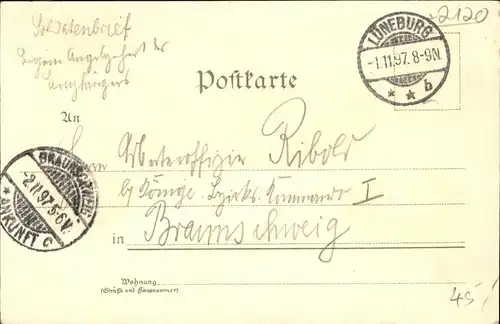 Soldatenbrief
Eigene Angelegenheit des
Empfängers
2120
LÜNEBURG
-1.11.97. 8-9N.
* * b
Postkarte
An
Herrn Unteroffizier Ribold
b/ Königl. Bezirks-Kommando I
in Braunschweig
BRAUNSCHWEIG
-2.11.97. 5-6V.
* ANKUNFT c
Wohnung
(Straße und Hausnummer)
45/